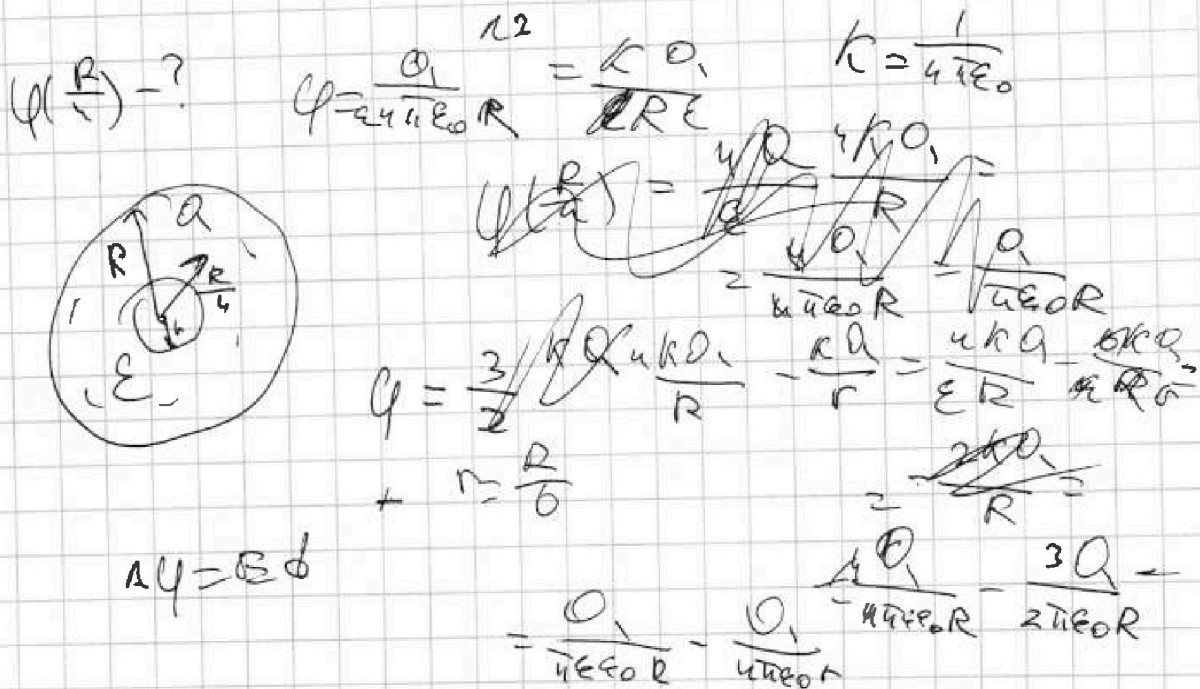 12
φ(R/4) - ?
φ = Q/(ε4πε₀R) = KQ/(Rε)
K = 1/(4πε₀)
φ(R/4) = 4Q 4KQ/R =
= 4Q/(4πε₀R) = Q/(πε₀R)
R Q R/4
r
ε
φ = 3/2 kQ 4kQ/R - kQ/r = 4kQ/(εR) - 6kQ
+ r = R/6
= - 2kQ/R =
Δφ = Ed
= Q/(πεε₀R) - Q/(4πε₀r)
- 3Q/(2πε₀R) -